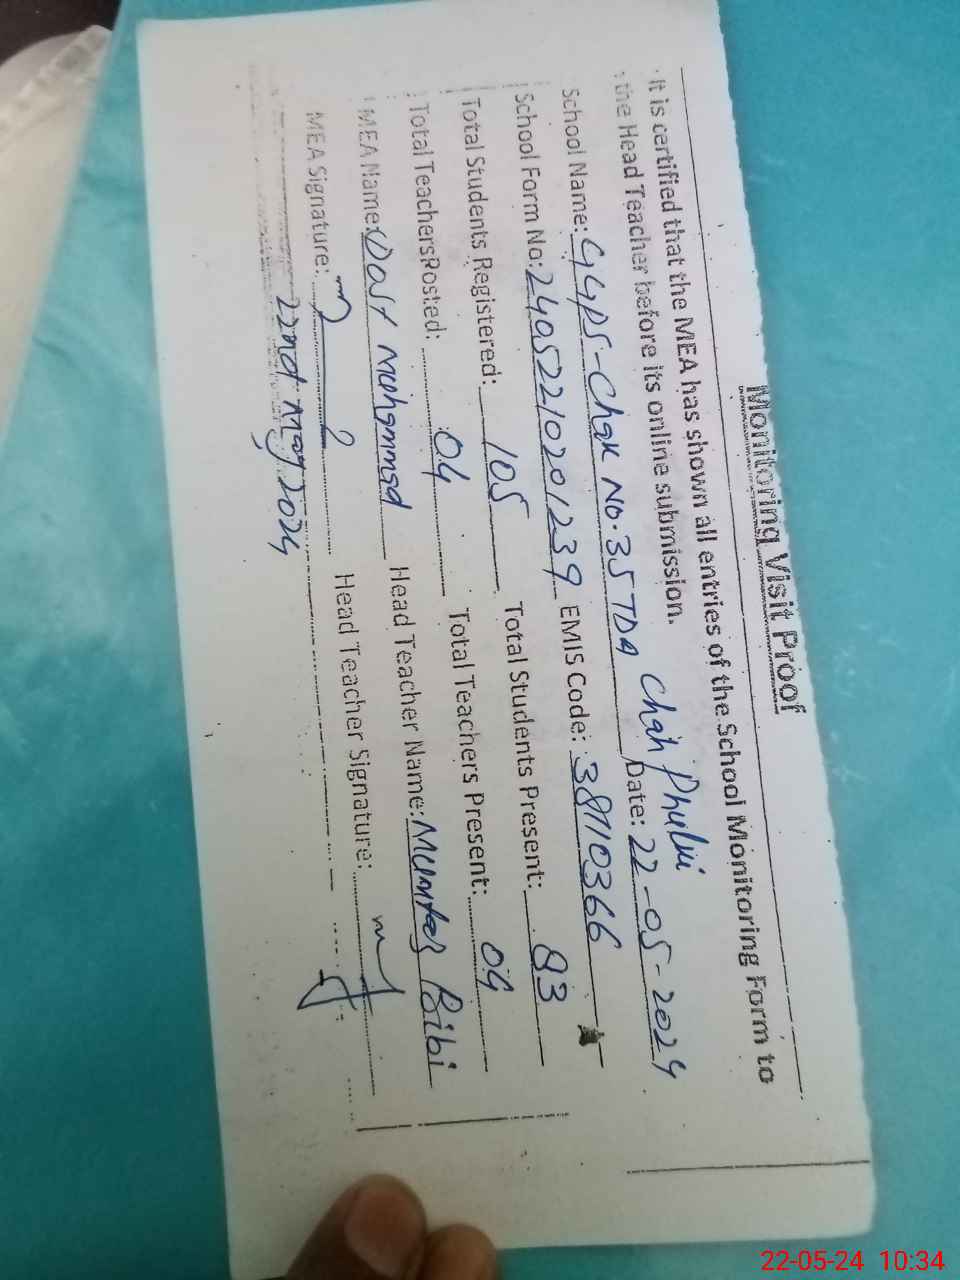 Monitoring Visit Proof
It is certified that the MEA has shown all entries of the School Monitoring Form to
the Head Teacher before its online submission.
School Name: GGPS-Chak No.35 TDA Chah Phulwi Date: 22-05-2024
School Form No: 2405221020201239 EMIS Code: 38110366
Total Students Registered: 105 Total Students Present: 83
Total TeachersPosted: 04 Total Teachers Present: 04
MEA Name: Dost Muhammad Head Teacher Name: Mumtaz Bibi
MEA Signature: Head Teacher Signature:
22nd May 2024
22-05-24 10:34